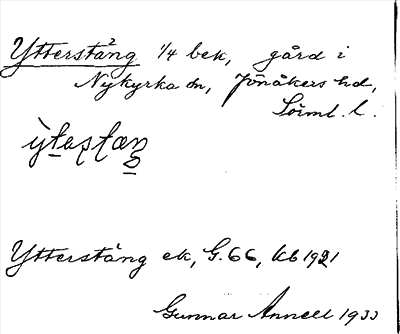 Ytterstång 1/4 bek, gård i
Nykyrka sn, Jönåkers hd,
Sörml. l.
Ytterstång ek, G. 66, kb 1921
Gunnar Annell 1933